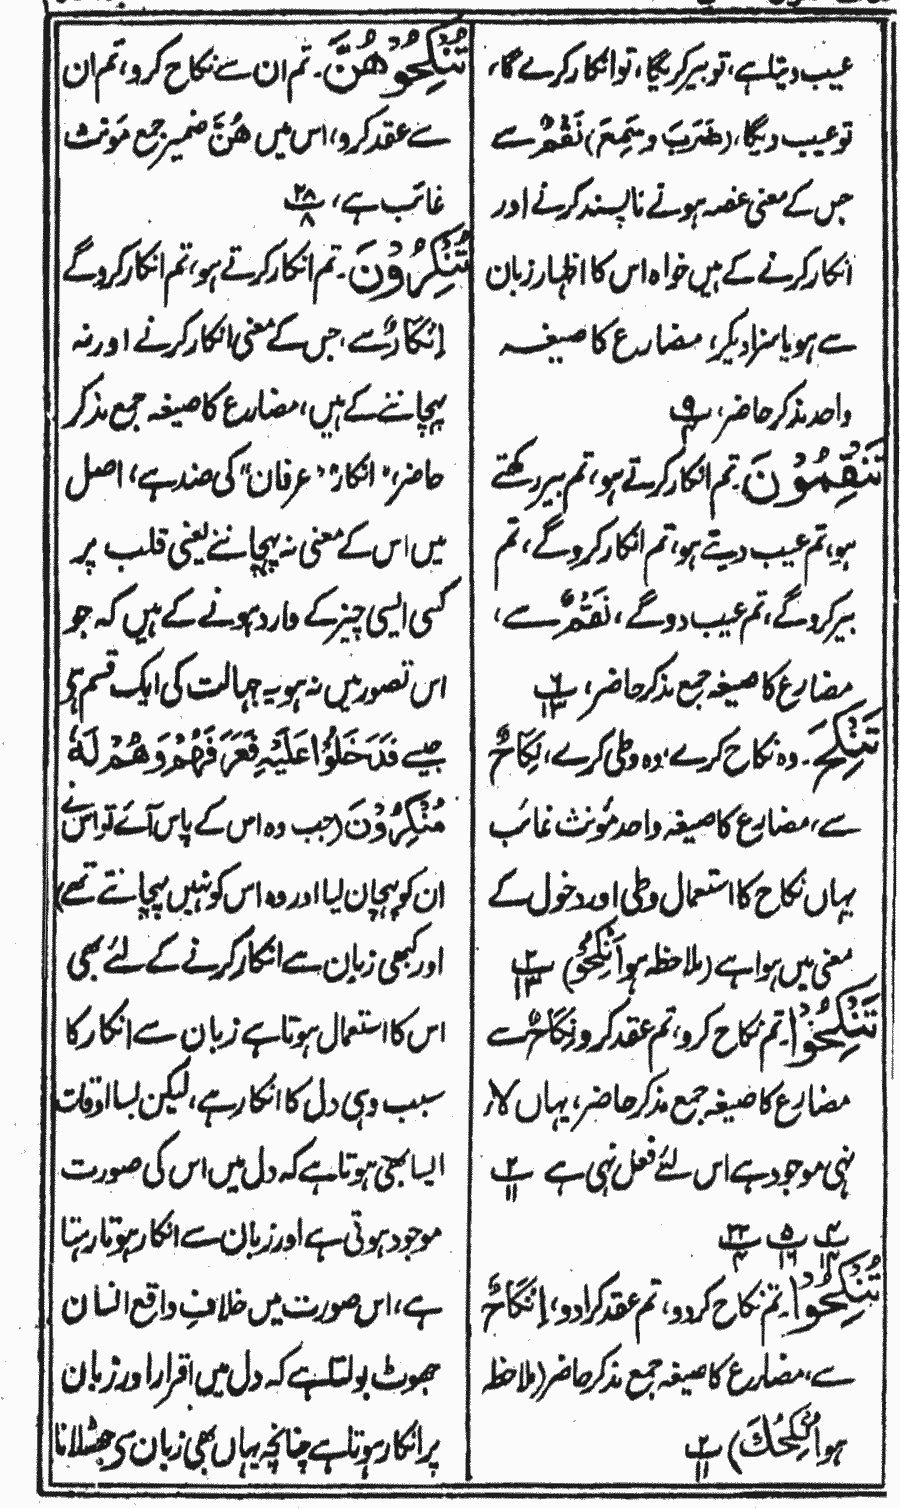 عیب دیتا ہے، تو بیر کریگا، تو انکار کرے گا،
تو عیب دیگا، (ضَرَبَ و سَمِعَ) نَقْمٌ سے
جس کے معنی غصہ ہونے ناپسند کرنے اور
انکار کرنے کے ہیں خواہ اس کا اظہار زبان
سے ہو یا سزا دیکر، مضارع کا صیغہ
واحد مذکر حاضر، ۹
تَنْقِمُوْنَ ۔ تم انکار کرتے ہو، تم بیر رکھتے
ہو، تم عیب دیتے ہو، تم انکار کرو گے، تم
بیر کرو گے، تم عیب دو گے، نَقْمٌ سے،
مضارع کا صیغہ جمع مذکر حاضر، ۶ ۱۳
تَنْكِحَ ۔ وہ نکاح کرے، وہ وطی کرے، نِكَاحٌ
سے، مضارع کا صیغہ واحد مؤنث غائب
یہاں نکاح کا استعمال وطی اور دخول کے
معنی میں ہوا ہے (ملاحظہ ہو اَنْكِحُوْ) ۲ ۱۳
تَنْكِحُوْا ۔ تم نکاح کرو، تم عقد کرو نِكَاحٌ سے
مضارع کا صیغہ جمع مذکر حاضر، یہاں لائ
نہی موجود ہے اس لئے فعل نہی ہے ۲ ۱۱
۴ ۱۴ ۵ ۱۶ ۲۲ ۴
تُنْكِحُوْا ۔ تم نکاح کردو، تم عقد کرادو، اِنْكَاحٌ
سے، مضارع کا صیغہ جمع مذکر حاضر (ملاحظہ
ہو اُنْكِحُكَ) ۲ ۱۱
تَنْكِحُوْهُنَّ ۔ تم ان سے نکاح کرو، تم ان
سے عقد کرو، اس میں هُنَّ ضمیر جمع مؤنث
غائب ہے، ۲۸ ۸
تُنْكِرُوْنَ ۔ تم انکار کرتے ہو، تم انکار کرو گے
اِنْكَارٌ سے، جس کے معنی انکار کرنے اور نہ
پہچاننے کے ہیں، مضارع کا صیغہ جمع مذکر
حاضر، "انکار" "عرفان" کی ضد ہے، اصل
میں اس کے معنی نہ پہچاننے یعنی قلب پر
کسی ایسی چیز کے وارد ہونے کے ہیں کہ جو
اس تصور میں نہ ہو یہ جہالت کی ایک قسم ہی
جیسے فَدَخَلُوْا عَلَيْهِ فَعَرَفَهُمْ وَهُمْ لَهٗ
مُنْكِرُوْنَ (جب وہ اس کے پاس آئے تو اس نے
ان کو پہچان لیا اور وہ اس کو نہیں پہچانتے تھے)
اور کبھی زبان سے انکار کرنے کے لئے بھی
اس کا استعمال ہوتا ہے زبان سے انکار کا
سبب وہی دل کا انکار ہے، لیکن بسا اوقات
ایسا بھی ہوتا ہے کہ دل میں اس کی صورت
موجود ہوتی ہے اور زبان سے انکار ہوتا رہتا
ہے، اس صورت میں خلاف واقع انسان
جھوٹ بولتا ہے کہ دل میں اقرار اور زبان
پر انکار ہوتا ہے چنانچہ یہاں بھی زبان سی جھٹلانا